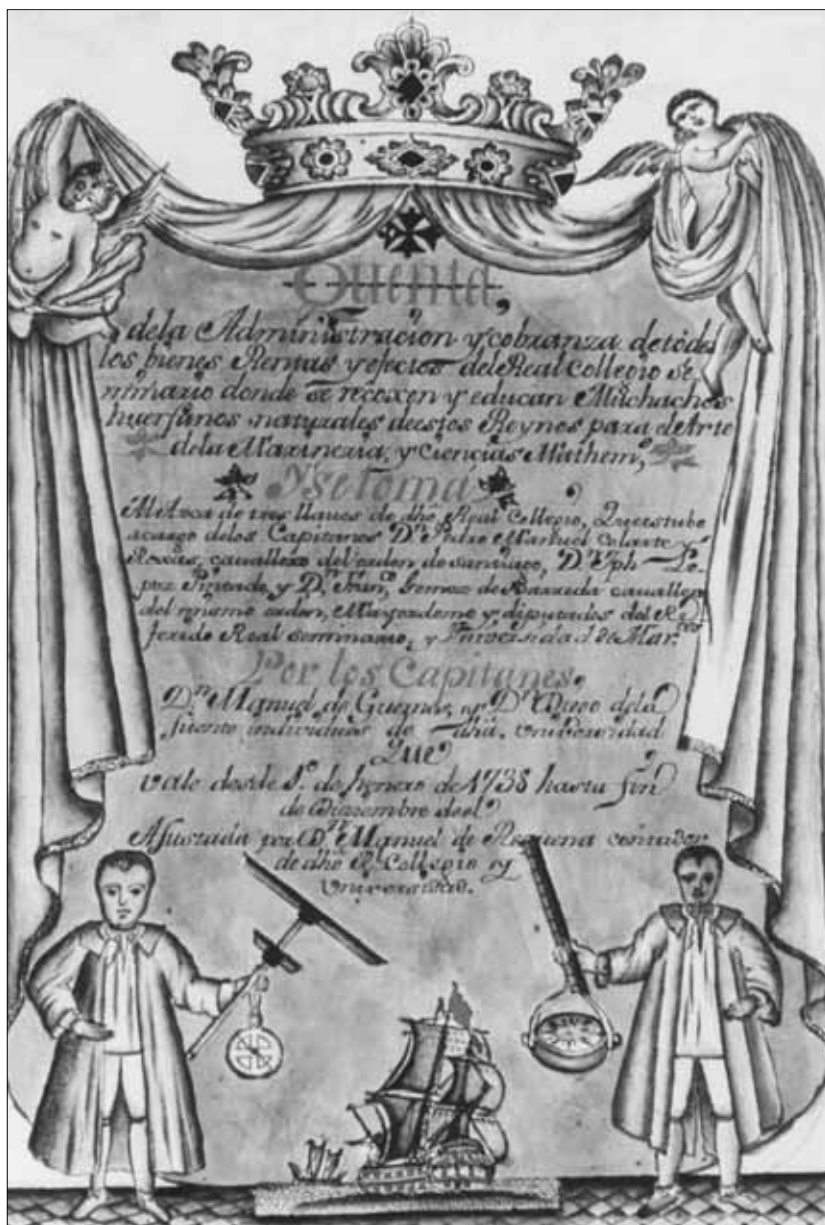 Quenta,
dela Administracion y cobranza detodos
los bienes Rentas y efectos del Real Collegio se
minario donde se recoxen y educan Muchachos
huerfanos naturales deestos Reynos para el Arte
dela Marineria, y Ciencias Mathem,
Yse toma
Al Arca de tres llaves de dho Real Collegio, Que estubo
acargo delos Capitanes Dn Pedro Manuel Colarte y
Roxas, cavallero del orden de santiago, Dn Jph Lo-
pez Pintado, y Dn Fran,co Gomez de Barreda cavallero
del mismo orden, Mayordomo y diputados del Re
ferido Real Seminario, y Universidad de Mar.
Por los Capitanes,
Dn Manuel de y Dn Diego dela
fuente individuos de dha. Universidad
Que
Vale desde 1.o de henero de 1738 hasta fin
de Diziembre deel
Ajustada por Dn Manuel de Requena contador
de dho Rl Collegio y
Universidad.